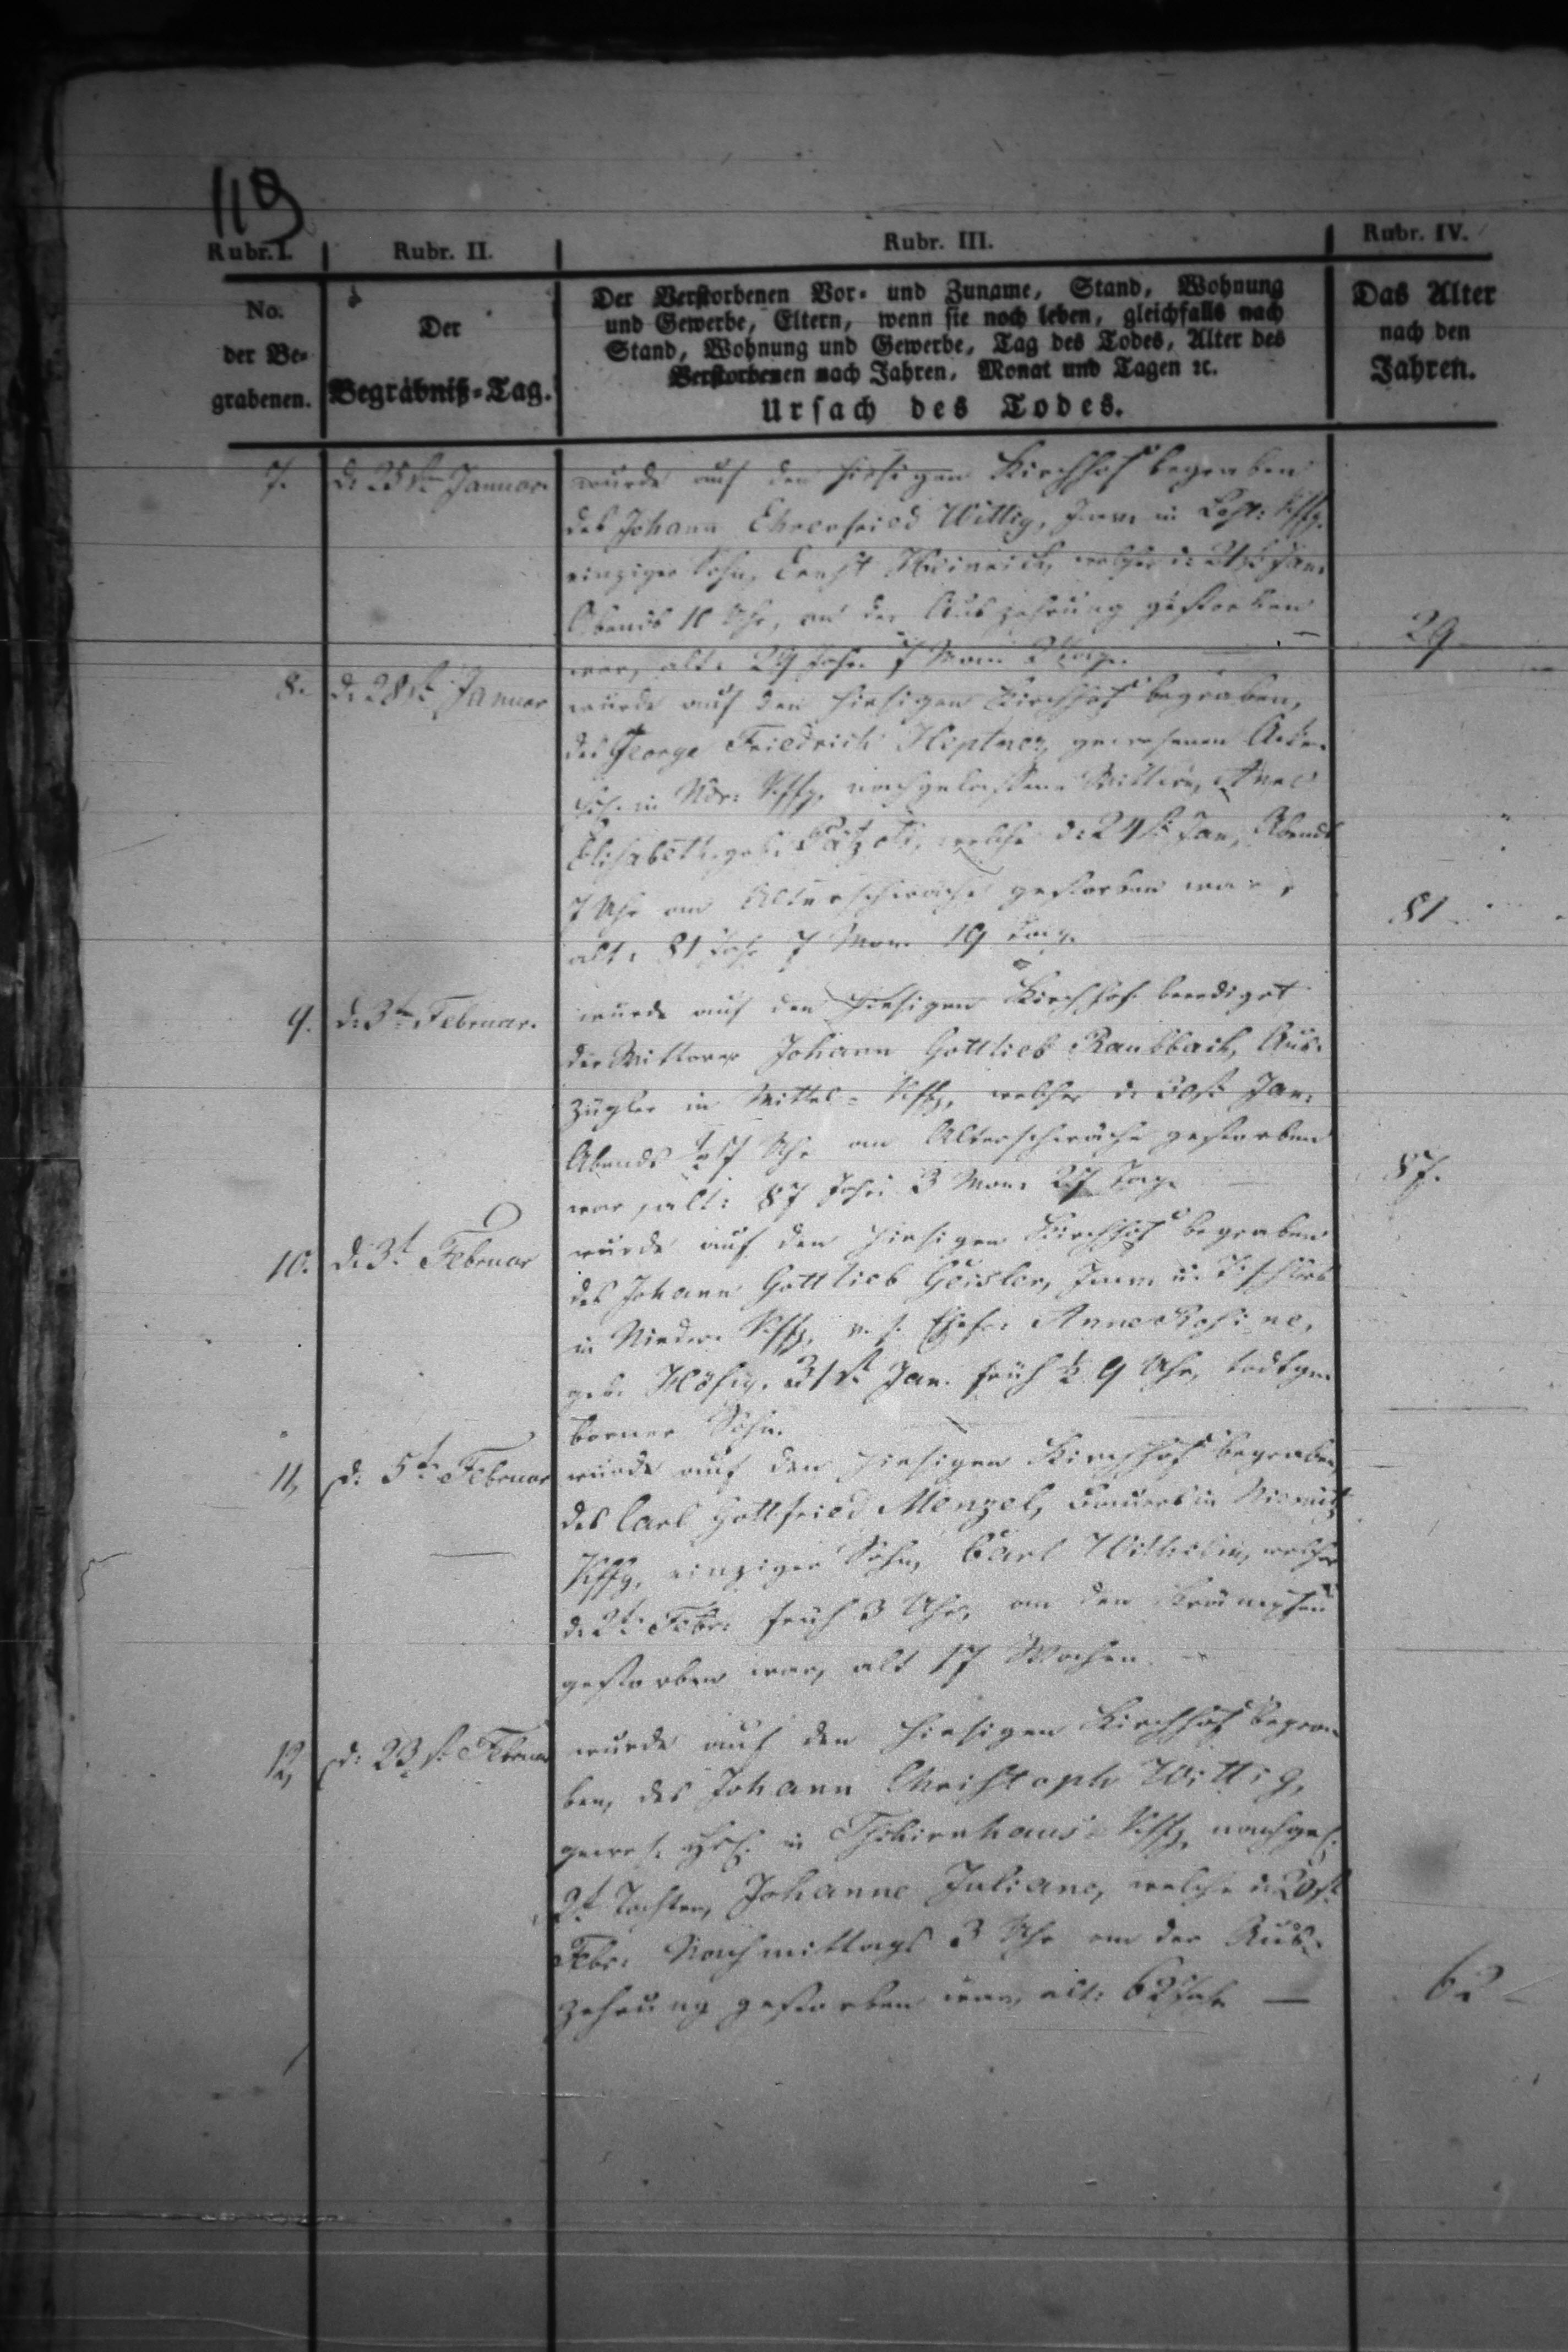 119
Rubr. I. Rubr. II. Rubr. III. Rubr. IV.
No. der Be- grabenen.
Der Begräbniß-Tag.
Der Verstorbenen Vor- und Zuname, Stand, Wohnung
und Gewerbe, Eltern, wenn sie noch leben, gleichfalls nach
Stand, Wohnung und Gewerbe, Tag des Todes, Alter des
Verstorbenen nach Jahren, Monat und Tagen ꝛc.
Ursach des Todes.
Das Alter nach den Jahren.
7. d. 25st. Januar. wurde auf den hiesigen Kirchhof begraben
des Johann Ehrenfried Wittig, Inw. in
einziger Sohn, Ernst Heinrich, welcher d. 21st. Jan.
Abends 10 Uhr, an der Auszehrung gestorben
war, alt. 29 Jahr. 7 Mon. Tage. 29
8. d. 28st. Januar wurde auf den hiesigen Kirchhof begraben,
des George Friedrich Heptner, gewesenen
in Ndr: nachgelassene Wittwe, Anne
Elisabeth, geb. welche d. 24st. Jan. Abends
7 Uhr an Altersschwäche gestorben war,
alt. 81 Jahr 7 Mon. 19 Tage. 81
9. d. 3t. Februar. wurde auf den hiesigen Kirchhof beerdiget
der Wittwer Johann Gottlieb Raubbach, Aus-
zügler in Mittel- welcher d. 30st. Jan.
Abends ½ 7 Uhr an Altersschwäche gestorben
war, alt: 87 Jahr. 3 Mon. 27 Tage 87.
10. d. 3t. Februar wurde auf den hiesigen Kirchhof begraben
des Johann Gottlieb Geisler, Inw. u. Tischlers
in Nieder- v. s. Ehefr. Anne Rosine,
geb. Hösig, 31st. Jan. früh ½ 9 Uhr, todtge-
borner Sohn.
11, d. 5t. Februar wurde auf den hiesigen Kirchhof begraben,
des Carl Gottfried Menzel, Bauers in
einziger Sohn, Carl Wilhelm, welcher
d. 2t. Febr. früh 3 Uhr, an den Krämpfen
gestorben war, alt 17 Wochen.
12, d. 23st. Februar wurde auf den hiesigen Kirchhof begra-
ben, des Johann Christoph Wittig,
gewes. in Tschirnhaus- nachgel.
2t. Tochter, Johanne Juliane, welche d. 20st.
Febr. Nachmittags 3 Uhr an der Aus-
zehrung gestorben war, alt: 62 Jahr — 62